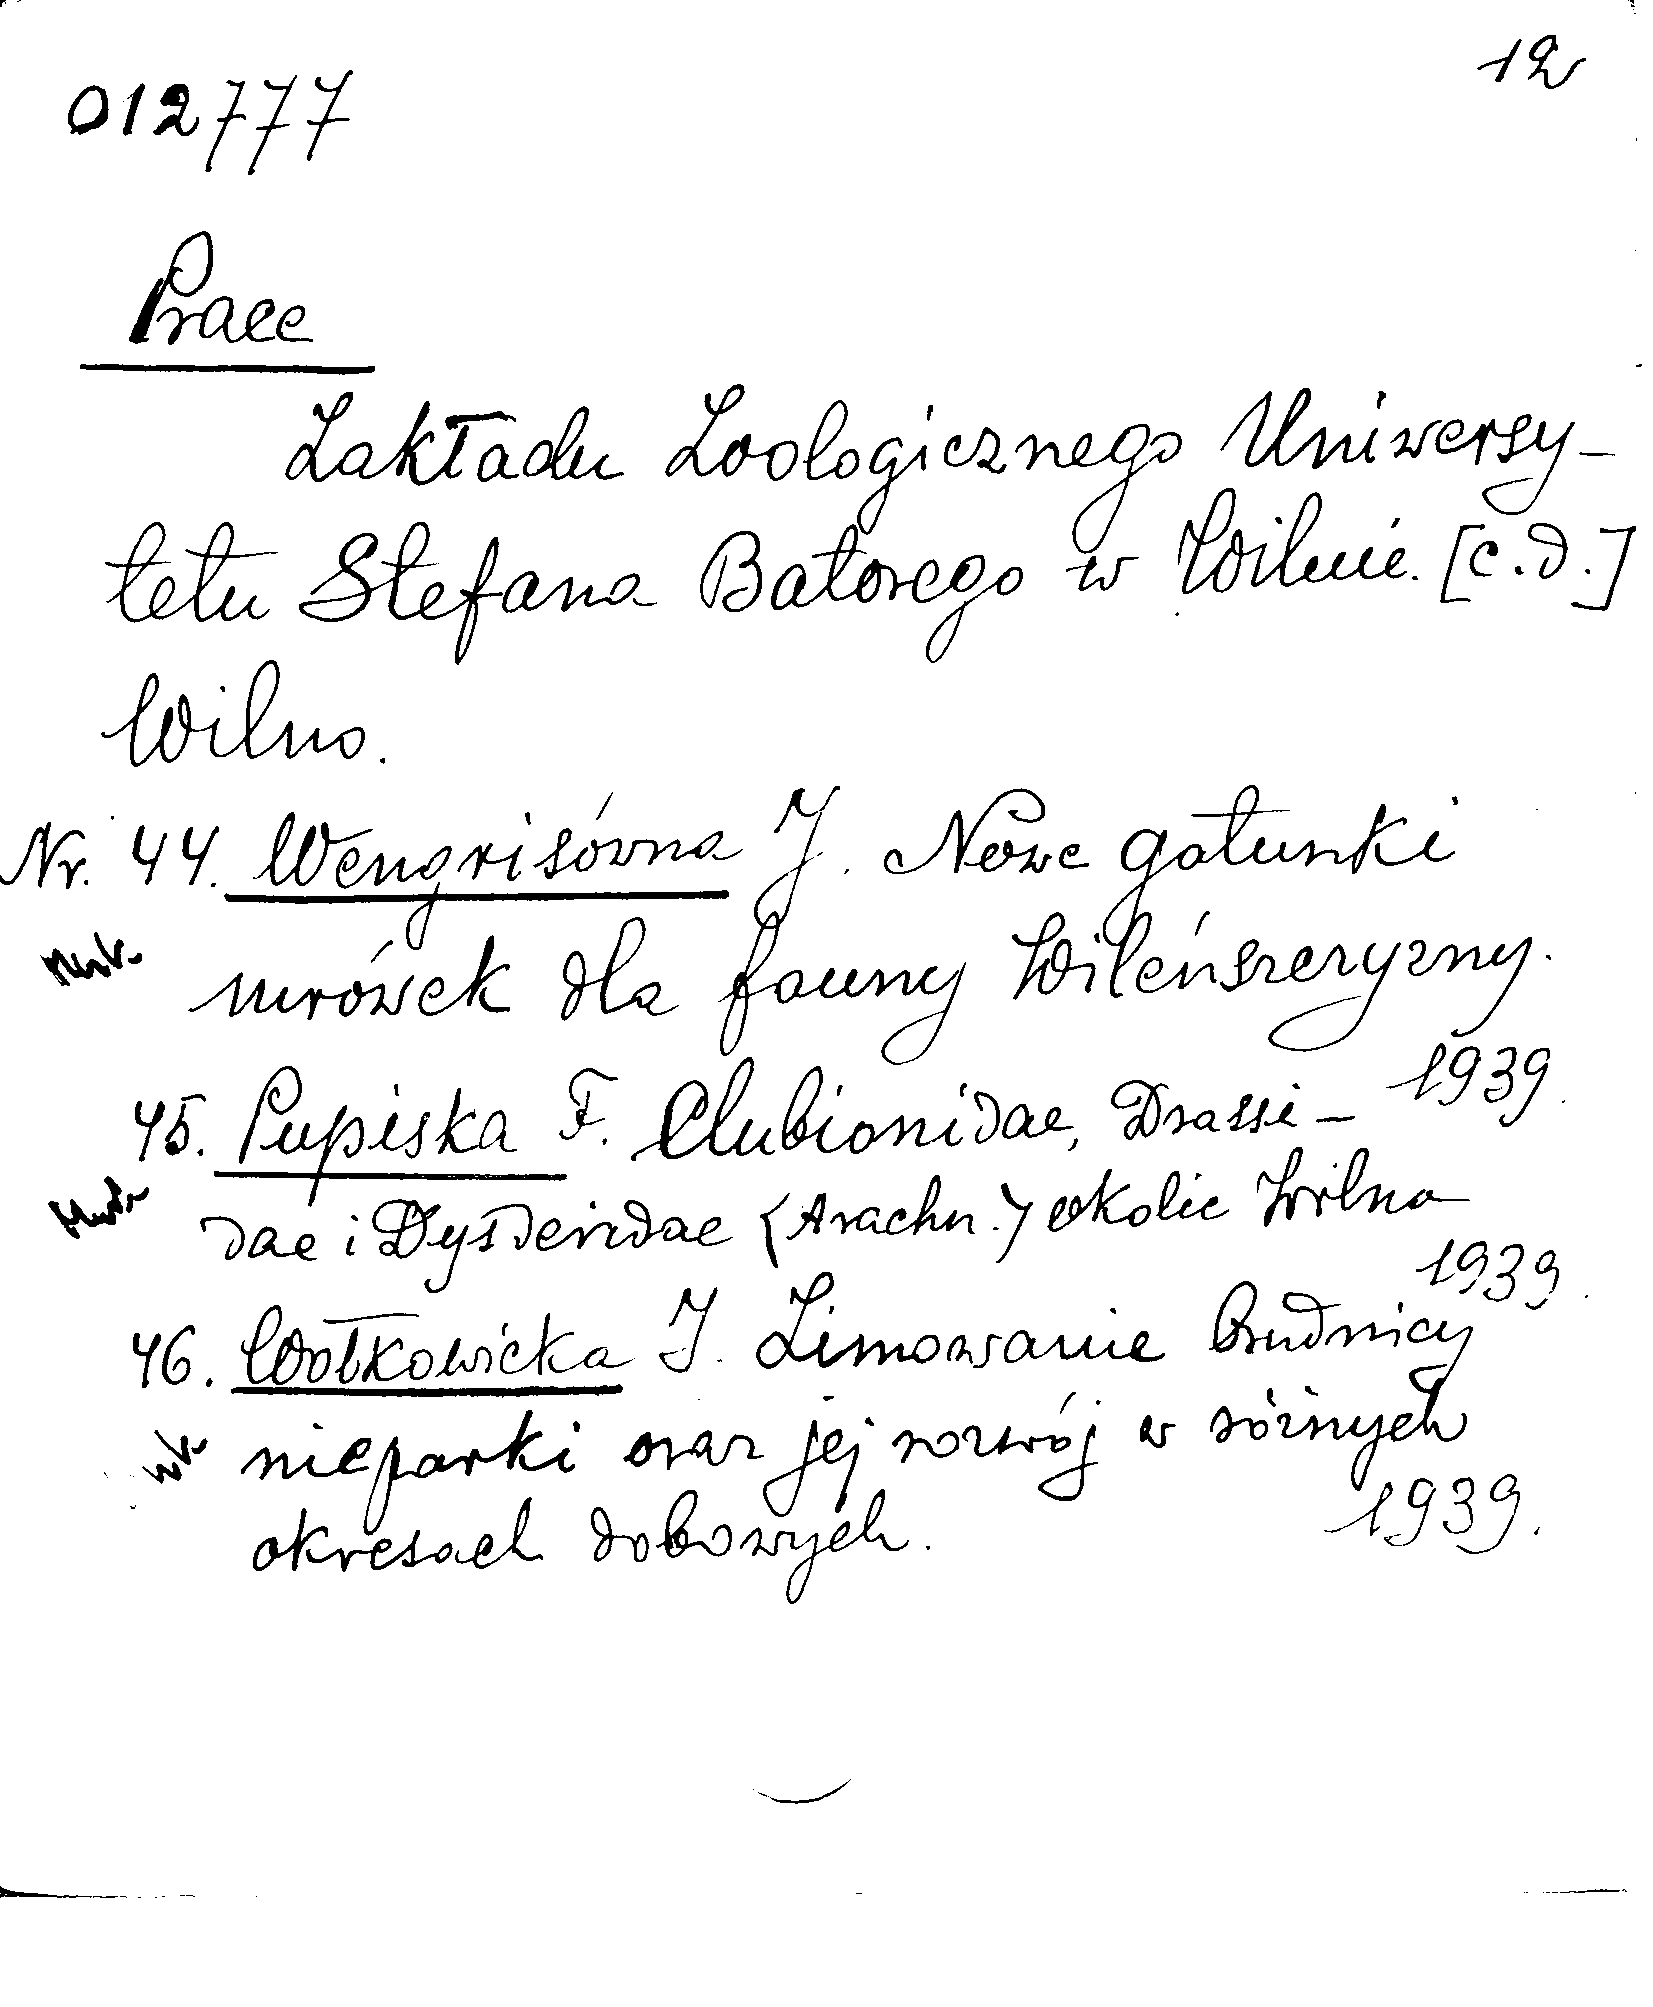 12
012777
Prace
Zakładu Zoologicznego Uniwersy-
tetu Stefana Batorego w Wilnie. [c.d.]
Wilno.
Nr. 44. Wengrisówna J. Nowe gatunki
mrówek dla fauny Wileńszczyzny.
1939.
45. Pupiska F. Clubionidae, Drassi-
dae i Dysderidae (Arachn.) okolic Wilna
1939.
46. Wołkowicka J. Zimowanie Brudnicy
nieparki oraz jej rozwój w różnych
okresach dobowych. 1939.